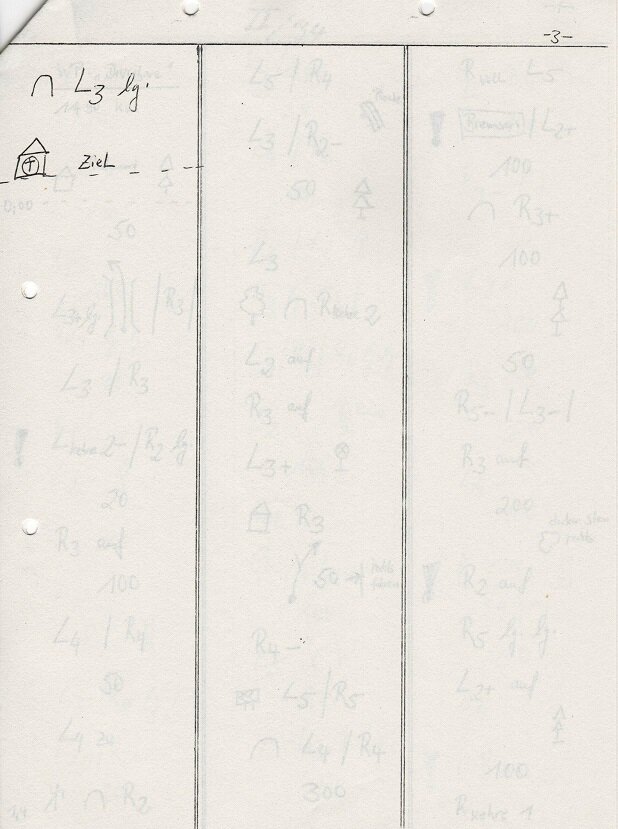 -3-
∩ L3 lg.
Ziel
0,00
50
L3+lg. /R3/
L3 / R3
! 2- / R2 lg
20
R3 auf
100
L4 / R4
50
L4 zu
∩ R2
L5 / R4
L3 / R2-
50
L3
∩ R 2
L2 auf
R3 auf
L3+
R3
50
R4-
L5 / R5
∩ L4 / R4
300
R L5
! Bremsen / L2+
100
∩ R3+
100
50
R5- / L3- /
R3 auf
200
! R2 auf
R5 lg. lg.
L3+ auf
100
R 1